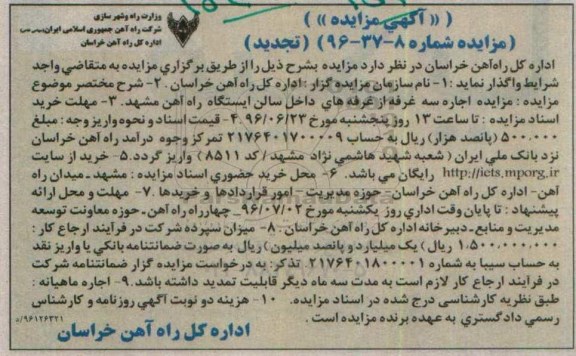 وزارت راه وشهر سازی
شرکت راه آهن جمهوری اسلامی ایران(سهامی خاص)
اداره کل راه آهن خراسان
( « آگهي مزايده » )
(مزایده شماره ۸-۳۷-۹۶) (تجدید)
اداره کل راه‌آهن خراسان در نظر دارد مزایده بشرح ذیل را از طریق برگزاري مزایده به متقاضي واجد
شرایط واگذار نماید : ۱- نام سازمان مزایده گزار : اداره کل راه آهن خراسان . ۲- شرح مختصر موضوع
مزایده : مزایده اجاره سه غرفه از غرفه هاي داخل سالن ایستگاه راه آهن مشهد. ۳- مهلت خرید
اسناد مزایده : تا ساعت ۱۳ روز پنجشنبه مورخ ۹۶/۰۶/۲۳ .۴- قیمت اسناد و نحوه واریز وجه : مبلغ
۵۰۰.۰۰۰ (پانصد هزار) ریال به حساب ۲۱۷۶۴۰۱۷۰۰۰۰۹ تمرکز وجوه درآمد راه آهن خراسان
نزد بانک ملي ایران ( شعبه شهید هاشمي نژاد مشهد / کد ۸۵۱۱ ) واریز گردد. ۵- خرید از سایت
http://iets.mporg.ir رایگان مي باشد. ۶- محل خرید حضوري اسناد مزایده : مشهد ـ میدان راه
آهن- اداره کل راه آهن خراسان- حوزه مدیریت _ امور قراردادها و خریدها .۷- مهلت و محل ارائه
پیشنهاد : تا پایان وقت اداري روز یکشنبه مورخ ۹۶/۰۷/۰۲_ چهارراه راه آهن ـ حوزه معاونت توسعه
مدیریت و منابع ـ دبیرخانه اداره کل راه آهن خراسان . ۸- میزان سپرده شرکت در فرآیند ارجاع کار :
۱.۵۰۰.۰۰۰.۰۰۰ ریال ( یک میلیارد و پانصد میلیون) ریال به صورت ضمانتنامه بانکي یا واریز نقد
به حساب سیبا به شماره ۲۱۷۶۴۰۱۸۰۰۰۰۱ تذکر: به درخواست مزایده گزار ضمانتنامه شرکت
در فرآیند ارجاع کار لازم است به مدت سه ماه دیگر قابلیت تمدید داشته باشد. ۹- اجاره ماهیانه :
طبق نظریه کارشناسی درج شده در اسناد مزایده. ۱۰- هزینه دو نوبت آگهي روزنامه و کارشناس
رسمي دادگستري به عهده برنده مزایده است .
۹۶۱۲۶۳۲۱/د
اداره کل راه آهن خراسان